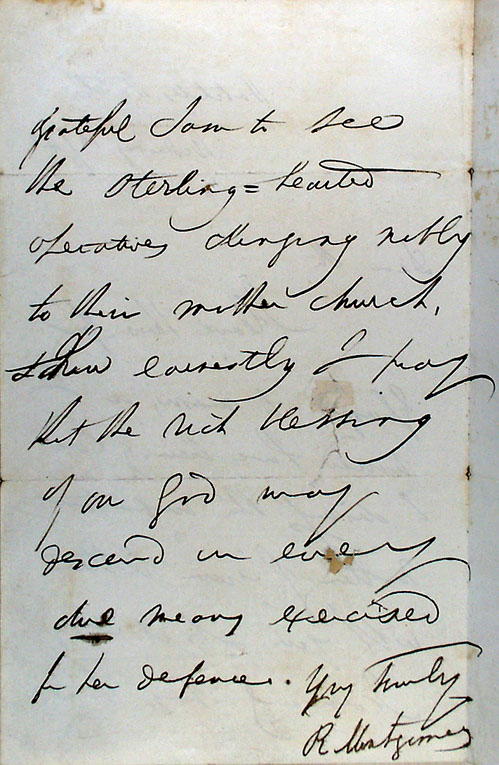 grateful I am to see
the sterling=hearted
operatives clinging nobly
to their mother church,
& how earnestly I pray
that the rich blessing
of our God may
descend on every
due means exercised
for her defence. Yrs Truly
R Montgomery